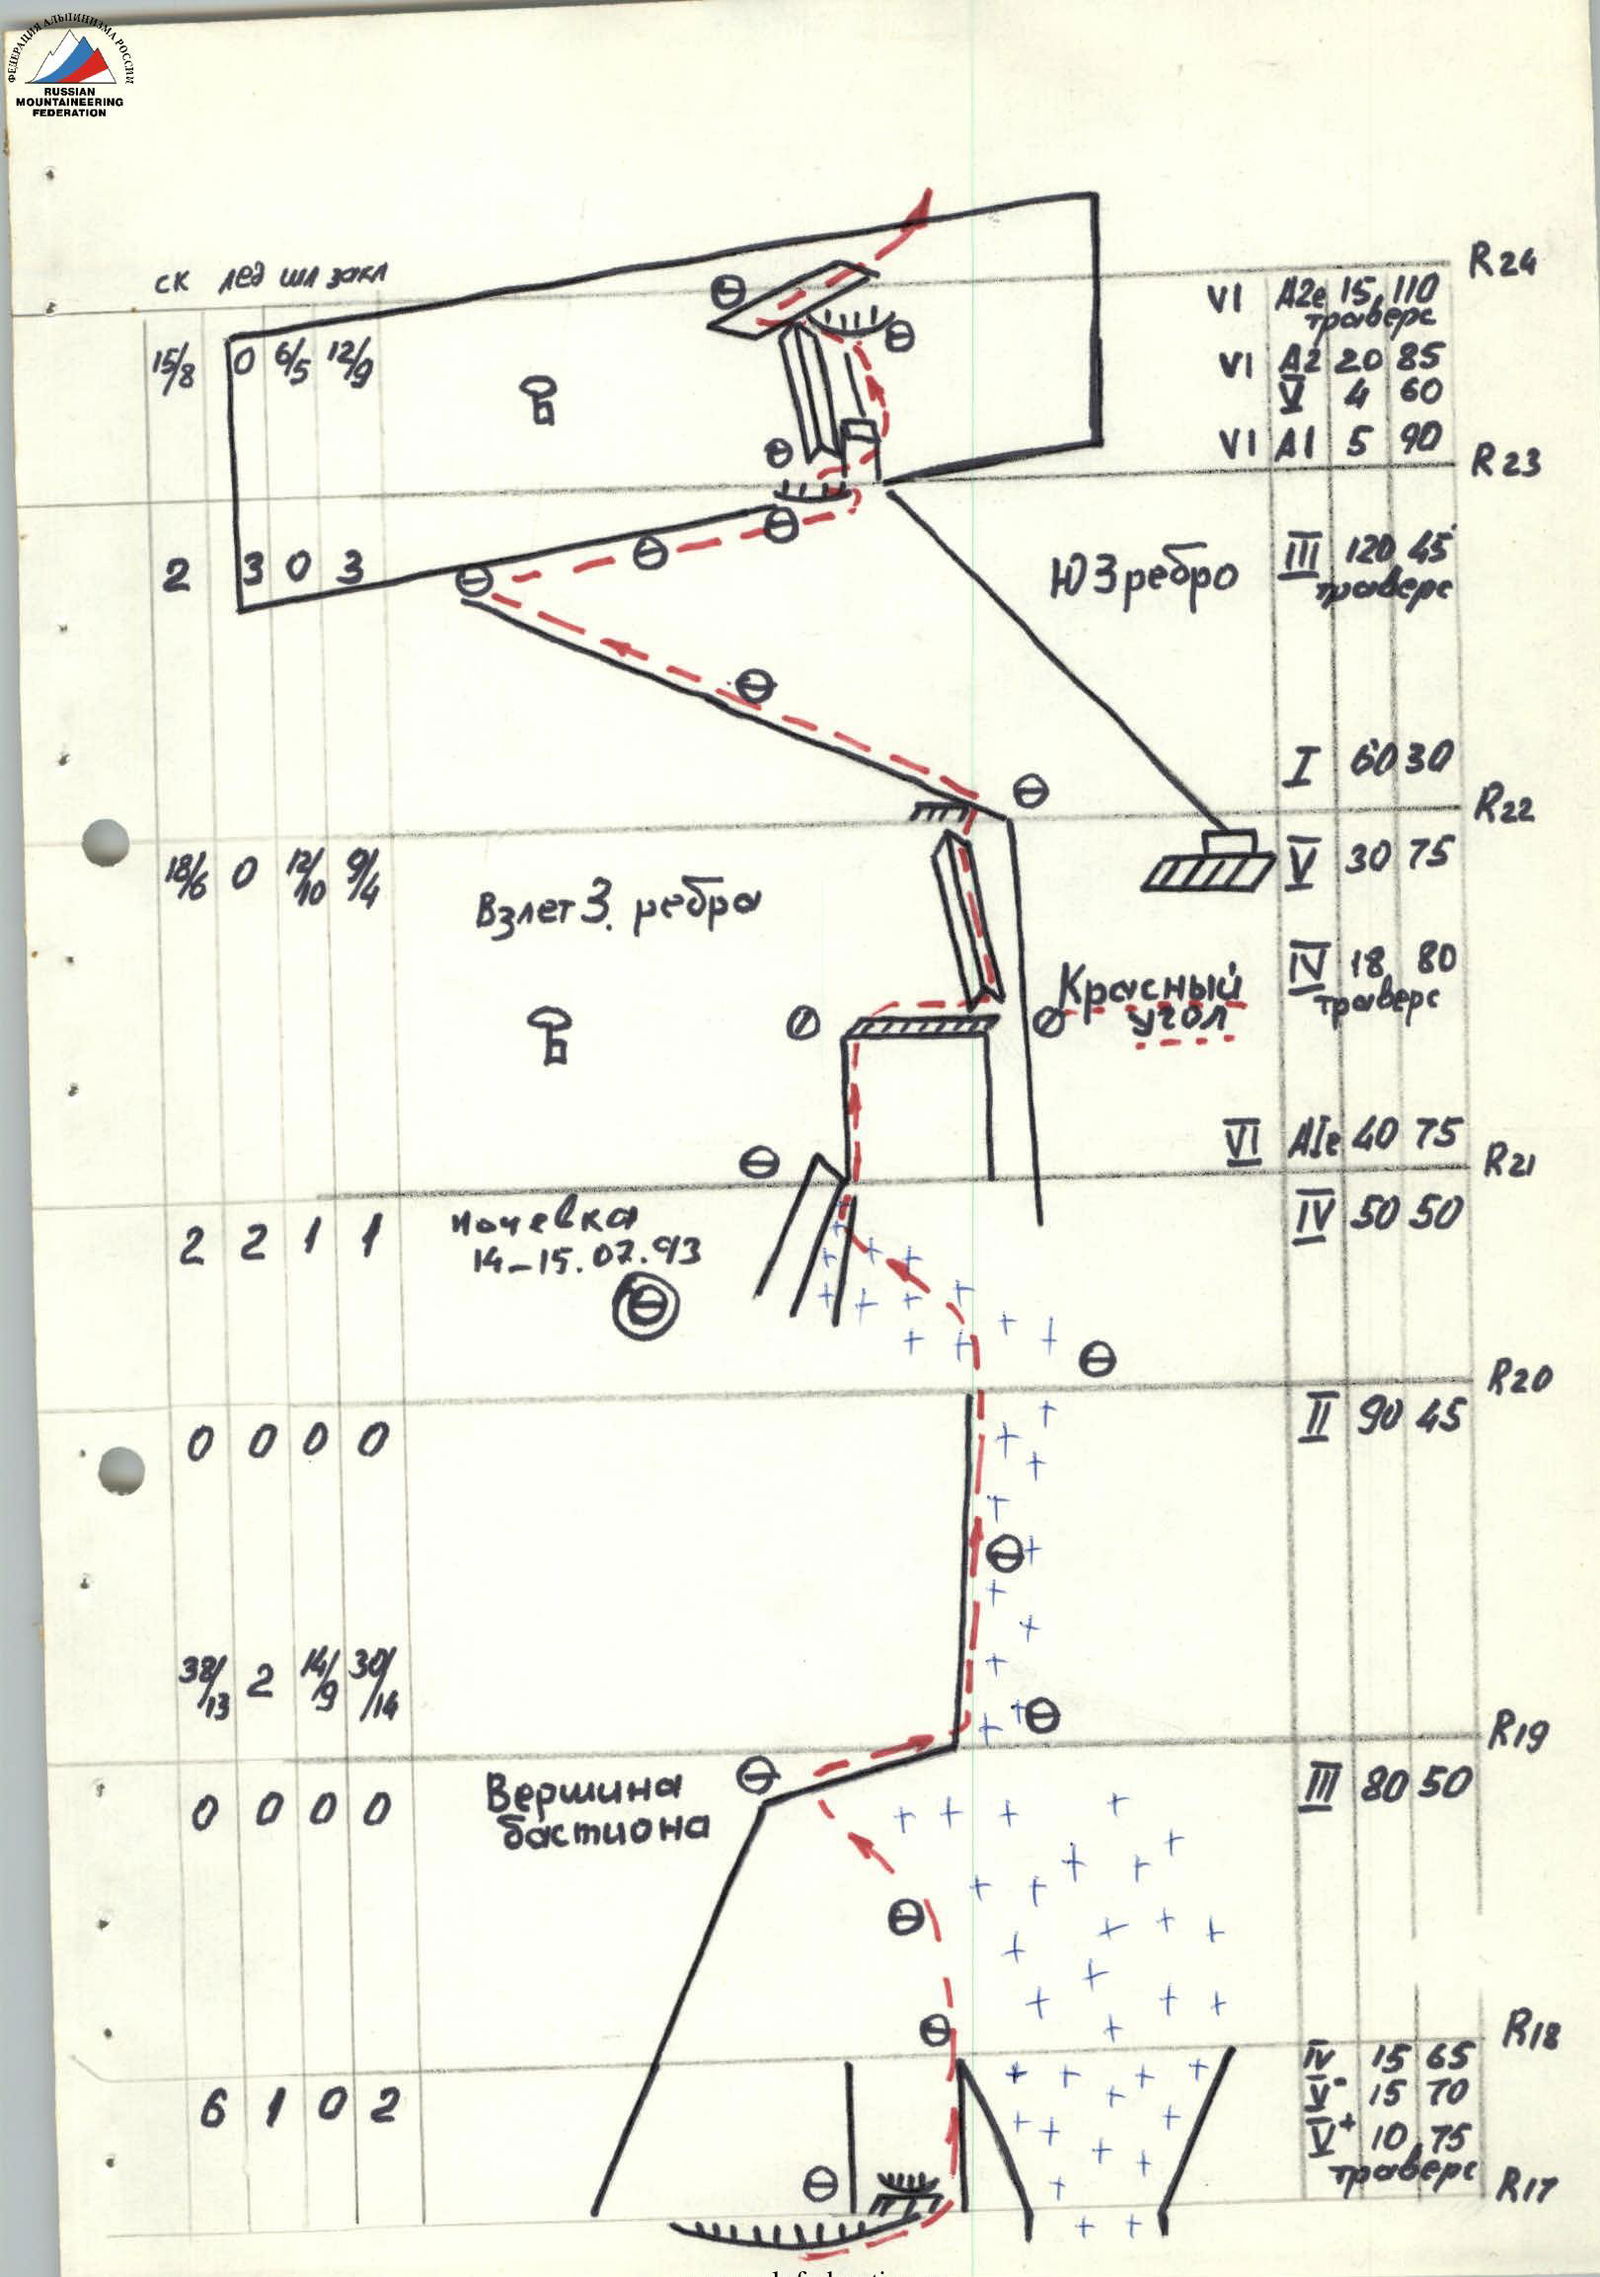 ФЕДЕРАЦИЯ АЛЬПИНИЗМА РОССИИ
RUSSIAN
MOUNTAINEERING
FEDERATION
ск лед шл закл
R24
VI A2e 15 110
траверс
15/8 0 6/5 12/9
VI A2 20 85
V 4 60
VI A1 5 90
R23
2 3 0 3
ЮЗ ребро
III 120 45
траверс
I 60 30
R22
18/6 0 12/10 9/4
V 30 75
Взлет З. ребра
IV 18 80
траверс
Красный
угол
VI AIe 40 75
R21
Ночевка
14-15.07.93
2 2 1 1
IV 50 50
R20
0 0 0 0
II 90 45
38/13 2 14/9 30/14
R19
Вершина
бастиона
0 0 0 0
III 80 50
R18
IV 15 65
V- 15 70
6 1 0 2
V+ 10 75
траверс
R17